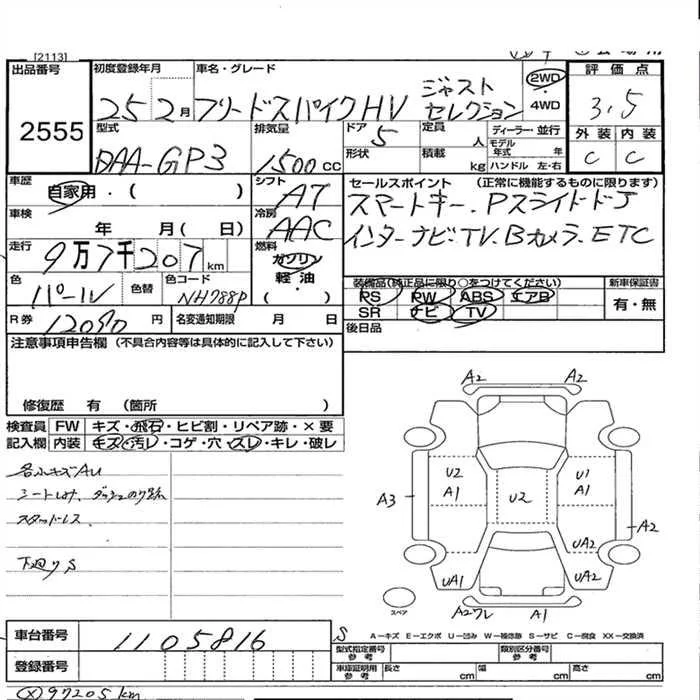 [2113]
出品番号
2555
初度登録年月
25 2月
車名・グレード
フリードスパイクHV ジャスト セレクション
2WD
・
4WD
評価点
3.5
外装 内装
C C
型式
DAA-GP3
排気量
1500cc
ドア 5
形状
定員 人
積載 kg
ディーラー・並行
モデル年式 年
ハンドル 左・右
車歴
自家用・( )
シフト AT
車検
年 月( 日)
冷房 AAC
走行
9万7千207km
燃料
ガソリン
軽油
・
色
パール
色替
色コード
NH788P
R券 12090円
名変通知期限 月 日
セールスポイント (正常に機能するものに限ります)
スマートキー、Pスライドドア
インターナビ、TV、Bカメラ、ETC
装備品(純正品に限り○をつけてください)
PS PW ABS エアB
SR ナビ TV
新車保証書
有・無
後日品
注意事項申告欄(不具合内容等は具体的に記入して下さい)
修復歴 有 (箇所 )
検査員記入欄
FW キズ・飛石・ヒビ割・リペア跡・×要
内装 キズ・汚レ・コゲ・穴・スレ・キレ・破レ
各小キズAU
シートしみ、ダッシュのり跡
スタッドレス
下廻りS
A2 A2
U2
A1
U2
U1
A1
A3
A2
UA2
UA1
UA2
A2ワレ
A1
スペア
S
A−キズ E−エクボ U−凹み W−補修跡 S−サビ C−腐食 XX−交換済
車台番号
1105816
登録番号
型式指定番号 参考
類別区分番号 参考
車庫証明用 参考
長さ cm
幅 cm
高さ cm
(X)97205km